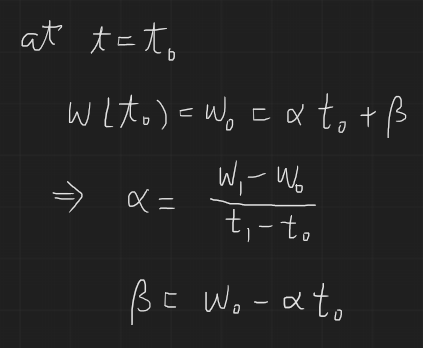 at t = t₀
W(t₀) = W₀ = α t₀ + β
⇒ α = (W₁ − W₀) / (t₁ − t₀)
β = W₀ − α t₀